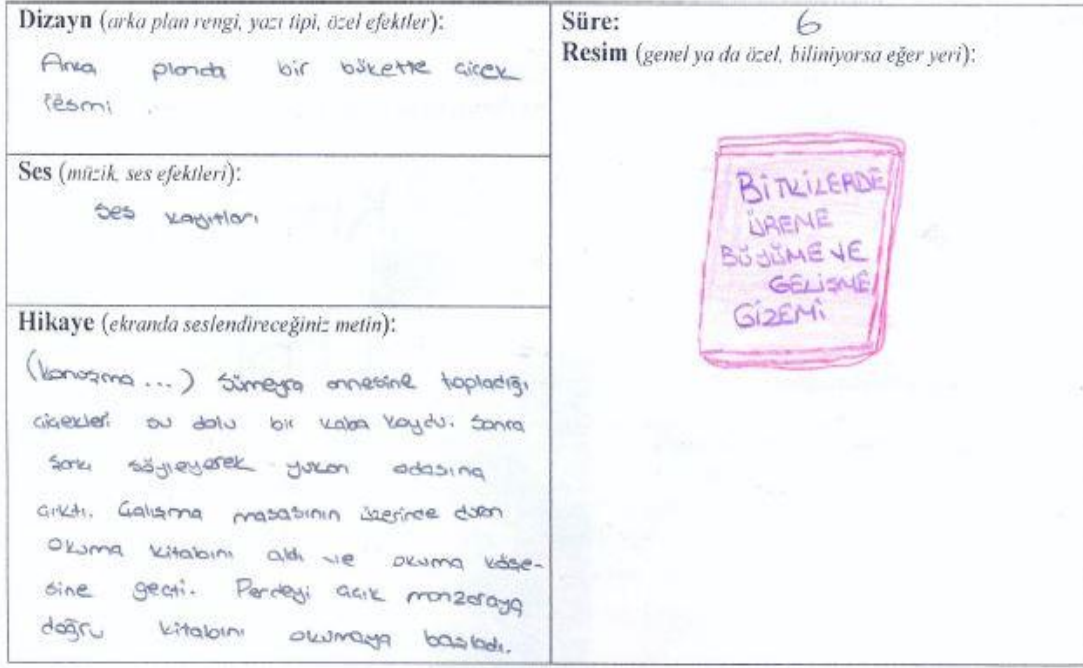 Dizayn (arka plan rengi, yazı tipi, özel efektler):
Arka planda bir bükette çiçek
resmi .
Ses (müzik, ses efektleri):
Ses kayıtları
Hikaye (ekranda seslendireceğiniz metin):
(konuşma ...) Sümeyra annesine topladığı
çiçekleri su dolu bir kaba koydu. Sonra
şarkı söyleyerek yukarı odasına
çıktı. Çalışma masasının üzerinde duran
okuma kitabını aldı ve okuma köşe-
sine geçti. Perdeyi açık manzaraya
doğru kitabını okumaya başladı.
Süre: 6
Resim (genel ya da özel, biliniyorsa eğer yeri):
BİTKİLERDE
ÜREME
BÜYÜME VE
GELİŞME
GİZEMİ